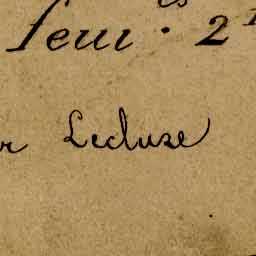 es
feui · 2
r Lecluse